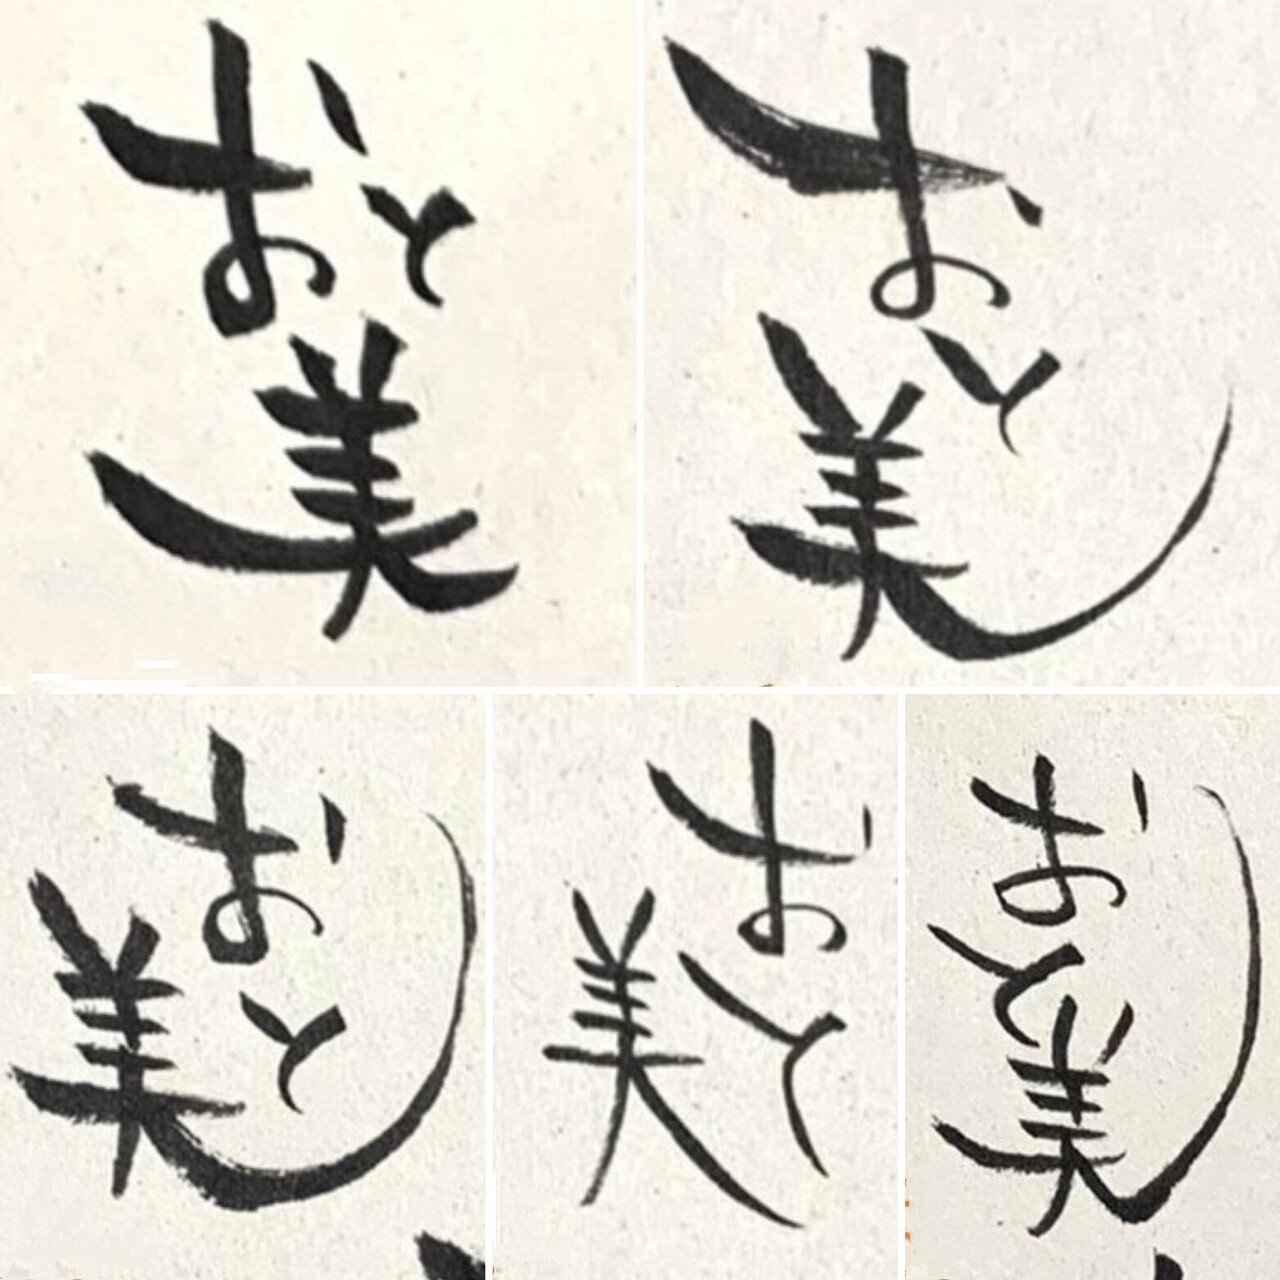 おと美
おと美
おと美
おと美
おと美